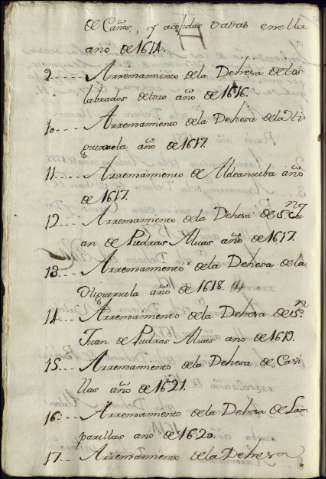 de Caños, y acopdas otras en ella
año de 1614.
2.... Arrendamiento de la Dehesa de los
labrados de año de 1616.
10.... Arrendamiento de la Dehesa de la Hi
gueruela año de 1617.
11.... Arrendamiento de Aldeanueba año
de 1617.
12.... Arrendamiento de la Dehesa de Sn Ju
an de Piedras Albas año de 1617.
13.... Arrendamiento de la Dehesa de la
Higueruela año de 1618.
14.... Arrendamiento de la Dehesa de Sn
Juan de Piedras Albas año de 1619.
15.... Arrendamiento de la Dehesa de Casi
llas año de 1621.
16.... Arrendamiento de la Dehesa de Lam
parillas año de 1620.
17.... Arrendamiento de la Dehesa